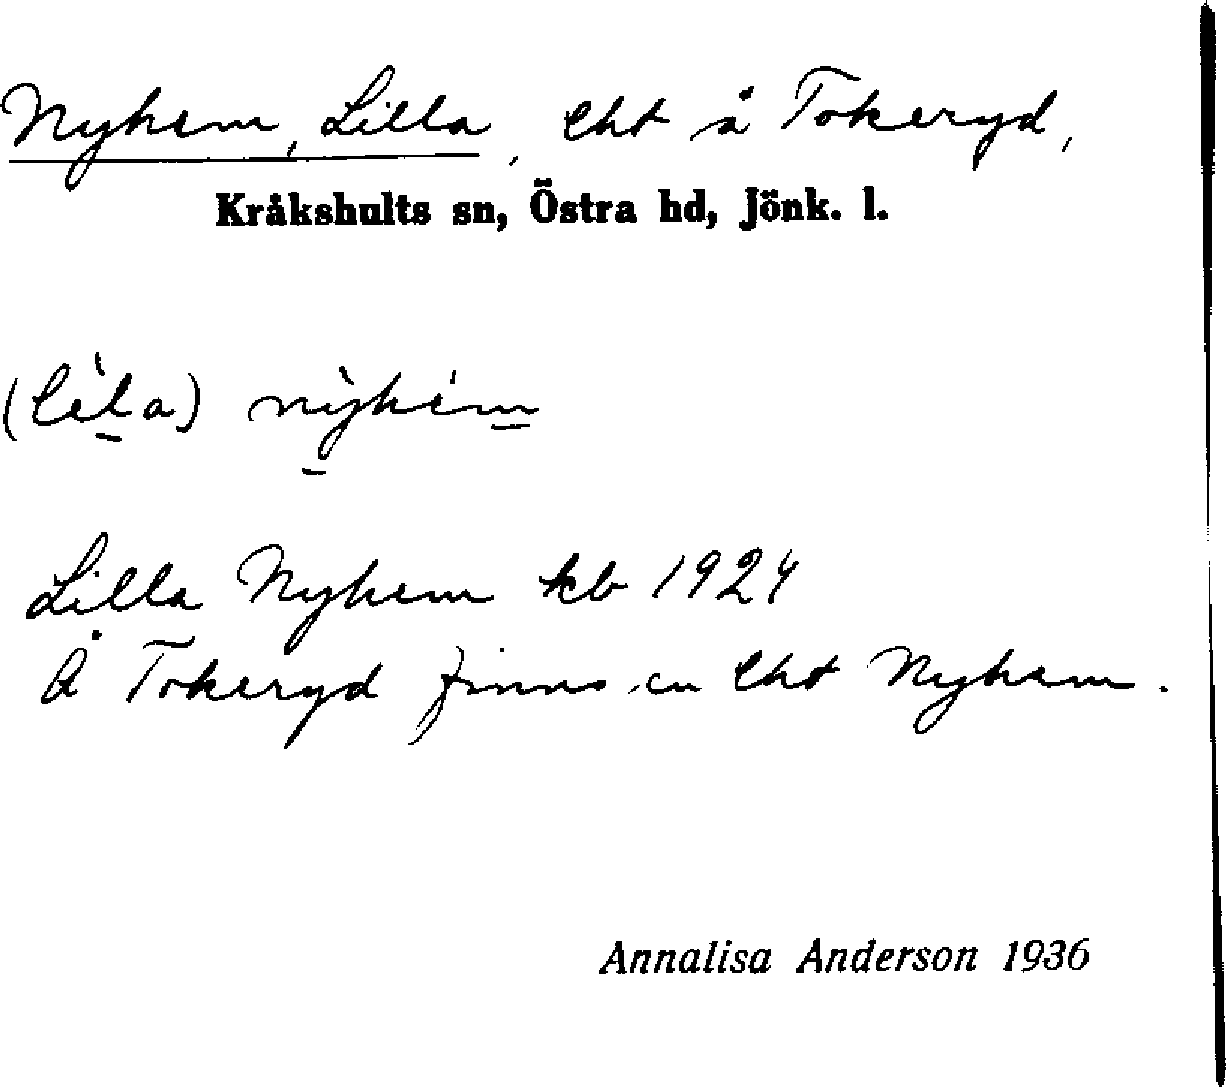 Nyhem, Lilla, lht å Tokeryd,
Kråkshults sn, Östra hd, Jönk. l.
(lìl̠a) nỳ̠hém̠
Lilla Nyhem kb 1924
Å Tokeryd finns en lht Nyhem.
Annalisa Anderson 1936